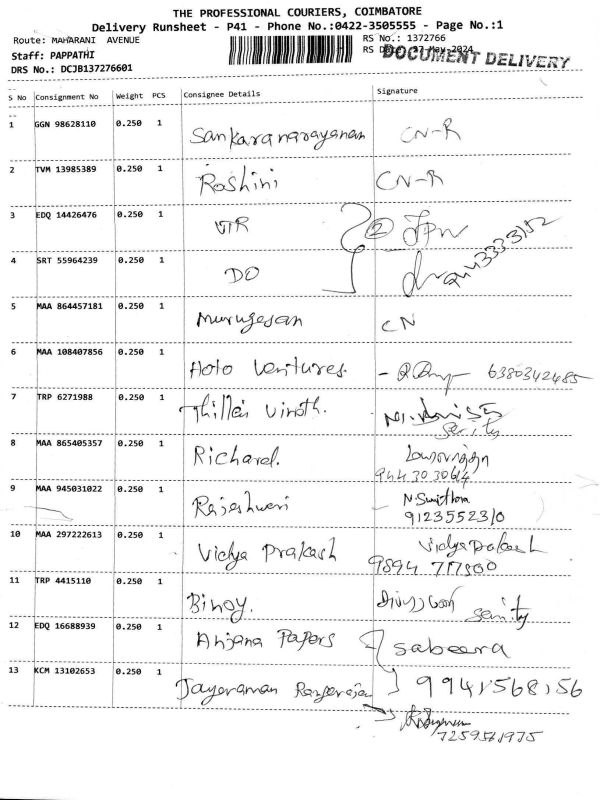 THE PROFESSIONAL COURIERS, COIMBATORE
Delivery Runsheet - P41 - Phone No.:0422-3505555 - Page No.:1
Route: MAHARANI AVENUE
RS No.: 1372766
Staff: PAPPATHI
RS Date: 27-May-2024
DOCUMENT DELIVERY
DRS No.: DCJB137276601
S No Consignment No Weight PCS Consignee Details Signature
1 GGN 98628110 0.250 1 Sankaranarayanan CN-R
2 TVM 13985389 0.250 1 Roshini CN-R
3 EDQ 14426476 0.250 1 VTR 2
4 SRT 55964239 0.250 1 DO
5 MAA 864457181 0.250 1 Murugesan CN
6 MAA 108407856 0.250 1 Hoto Ventures. 6380342485
7 TRP 6271988 0.250 1 Thillai Vinoth.
8 MAA 865405357 0.250 1 Richard.
9443030614
9 MAA 945031022 0.250 1 Rajeshwari N.Sumithra
9123552310
10 MAA 297222613 0.250 1 Vidya Prakash Vidya Prakash
9894 777800
11 TRP 4415110 0.250 1 Binoy.
12 EDQ 16688939 0.250 1 Anjana Papers Sabeera
13 KCM 13102653 0.250 1 Jayaraman Rangaraja 9941568156
7259561975